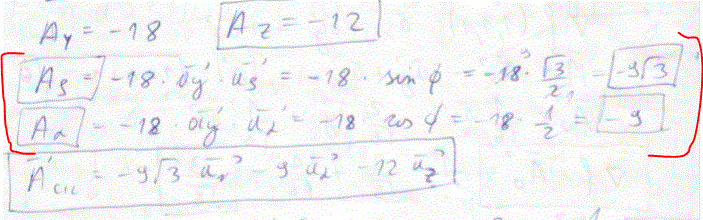 A_y = -18 A_z = -12
A_ρ = -18 · a̅y · a̅ρ = -18 · sin φ = -18 · √3/2 = -9√3
A_α = -18 · a̅y · a̅α = -18 cos φ = -18 · 1/2 = -9
A̅ = -9√3 a̅ - 9 a̅ - 12 a̅z